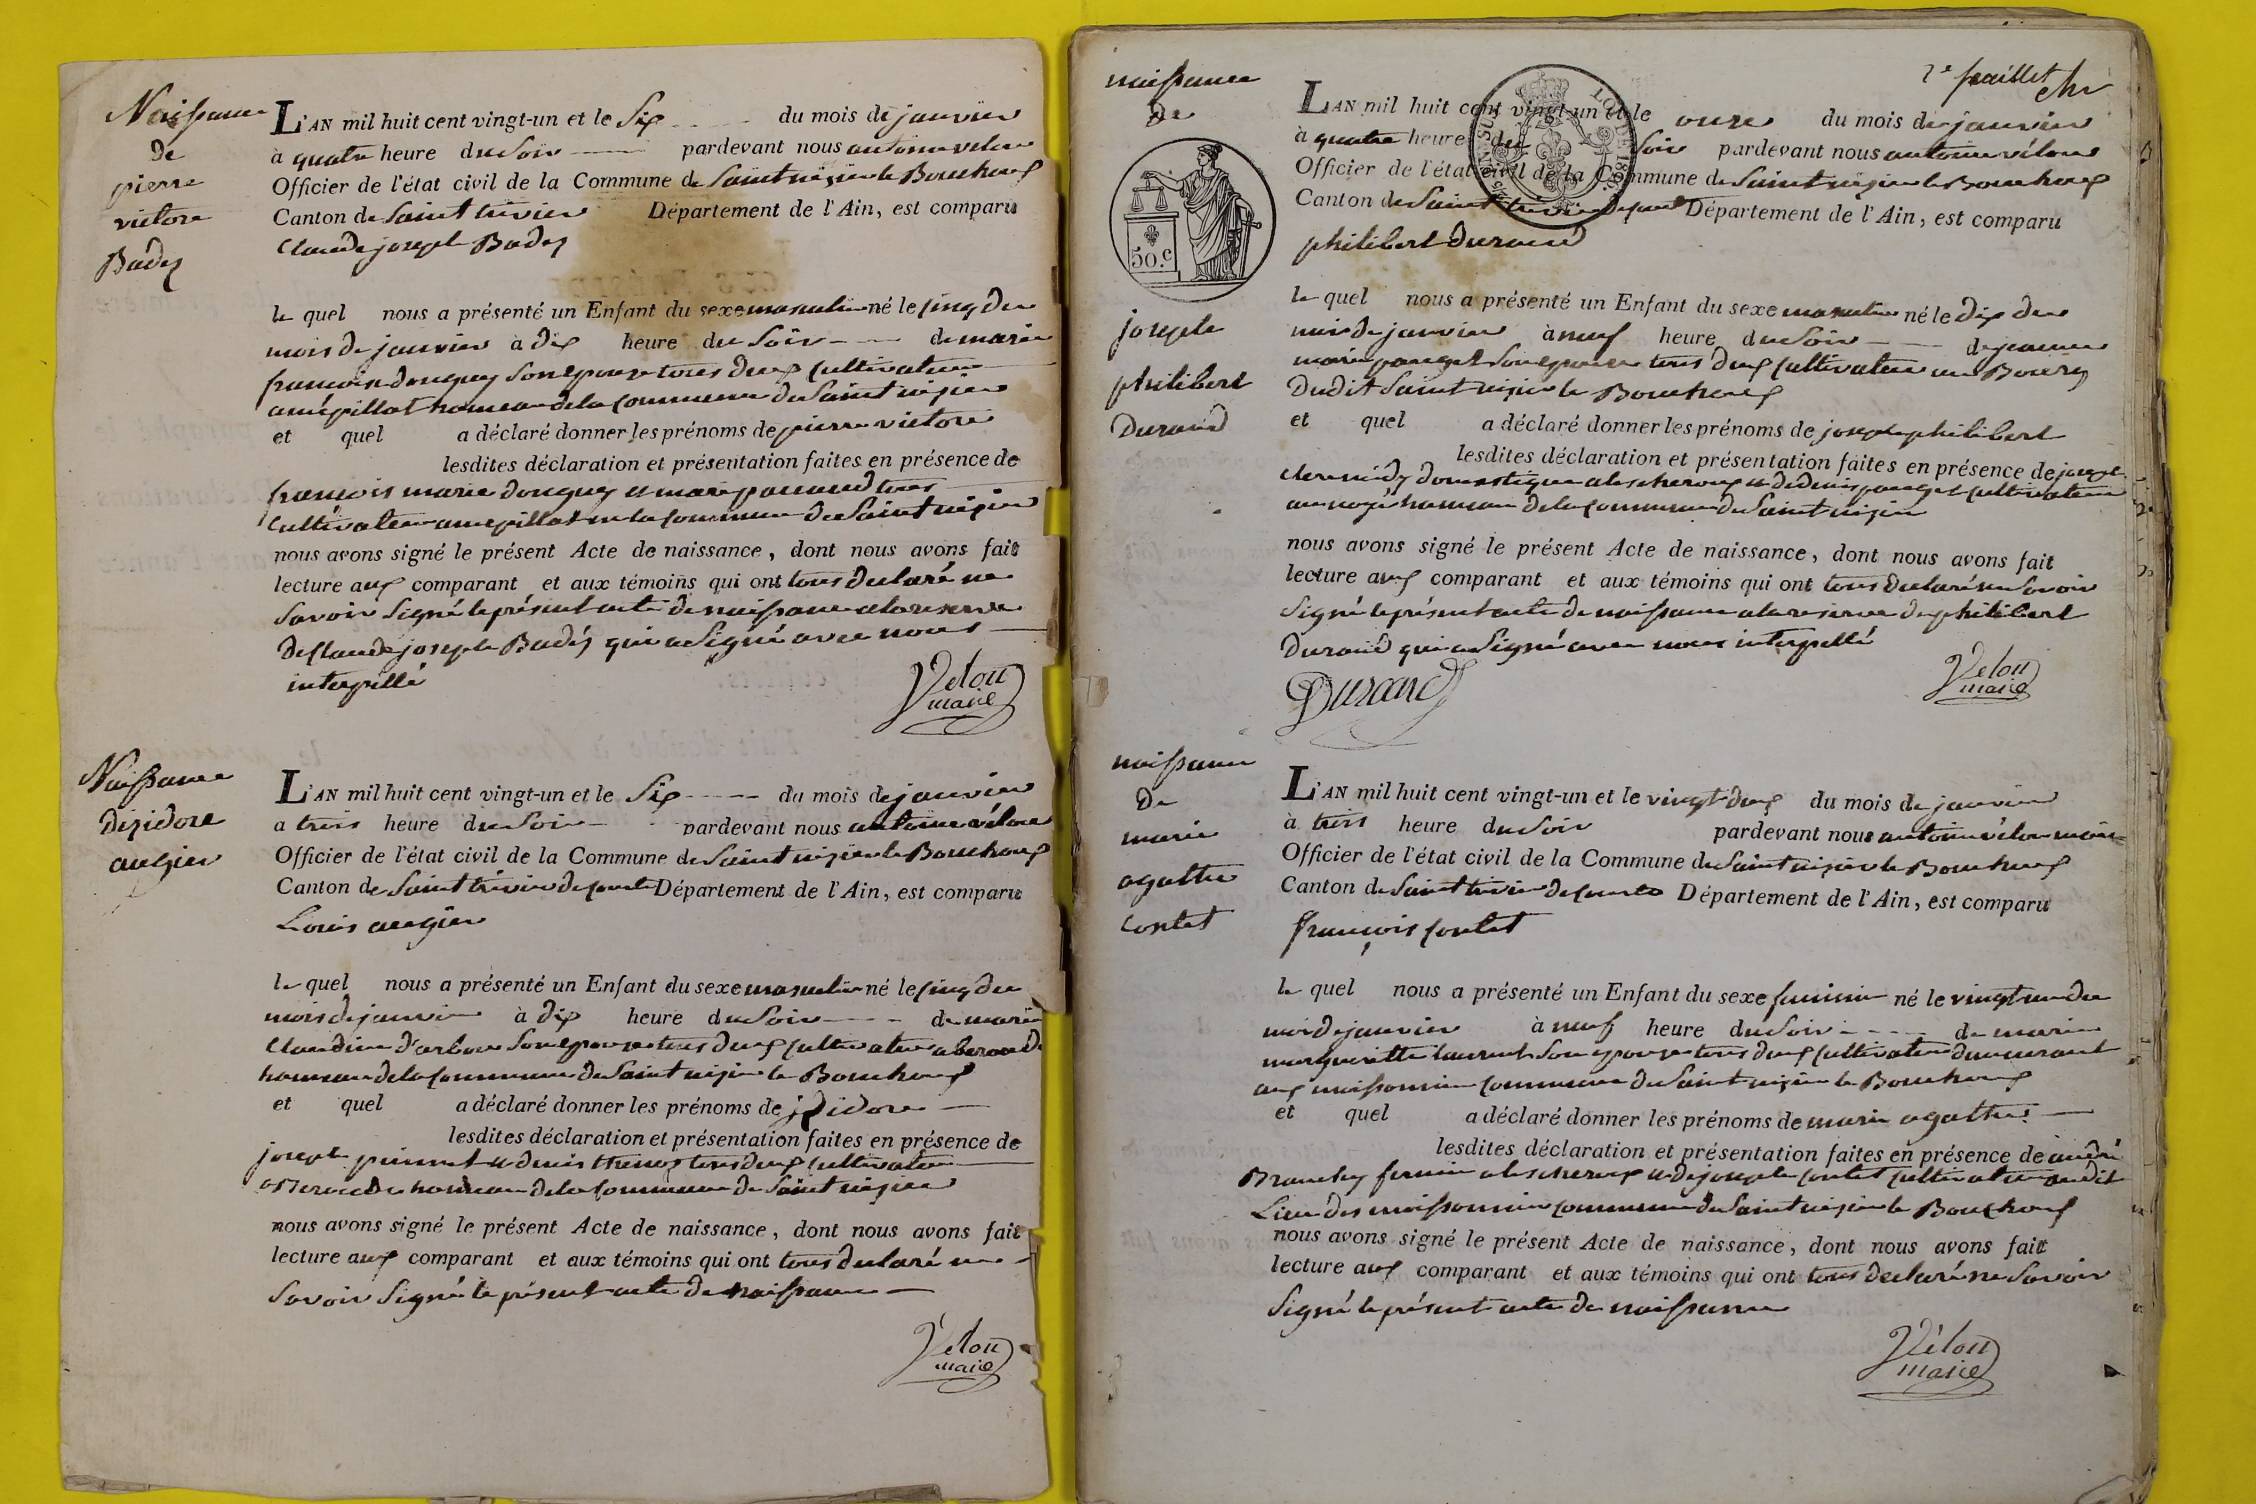 Naissance
de
pierre
victore
Badez
L'AN mil huit cent vingt-un et le Six du mois de janvier
à quatre heure du Soir pardevant nous antoine velon
Officier de l'état civil de la Commune de Saint nizier le Bouchoux
Canton de Saint trivier Département de l'Ain, est comparu
Claude joseph Badez
le quel nous a présenté un Enfant du sexe masculin né le cinq du
mois de janvier à dix heure du Soir de marie
françoise douguey Son epouse tous deux Cultivateur
hameau de la Commune de Saint nizier
et quel a déclaré donner les prénoms de pierre victore
lesdites déclaration et présentation faites en présence de
françois marie douguey et marie tous
Cultivateur en la Commune de Saint nizier
nous avons signé le présent Acte de naissance, dont nous avons fait
lecture aux comparant et aux témoins qui ont tous declaré ne
Savoir Signé le présent acte de naissance a la reserve
de Claude joseph Badez qui a Signé avec nous
interpellé
Velon
maire
Naissance
dizidore
augier
L'AN mil huit cent vingt-un et le Six du mois de janvier
a trois heure du Soir pardevant nous antoine vélon
Officier de l'état civil de la Commune de Saint nizier le Bouchoux
Canton de Saint trivier de courte Département de l'Ain, est comparu
Louis augier
le quel nous a présenté un Enfant du sexe masculin né le cinq du
mois de janvier à dix heure du Soir de marie
Claudine d'arbon Son epouse tous deux Cultivateur
hameau de la Commune de Saint nizier le Bouchoux
et quel a déclaré donner les prénoms de jzidore
lesdites déclaration et présentation faites en présence de
joseph et denis tous deux Cultivateur
hameau de la Commune de Saint nizier
nous avons signé le présent Acte de naissance, dont nous avons fait
lecture aux comparant et aux témoins qui ont tous declaré ne
Savoir Signé le présent acte de naissance
Velon
maire
2e feuillet
naissance
de
50.c
joseph
philibert
Durand
L'AN mil huit cent vingt-un et le onze du mois de janvier
à quatre heure du Soir pardevant nous antoine vélon
Officier de l'état civil de la Commune de Saint nizier le Bouchoux
Canton de Saint trivier de Département de l'Ain, est comparu
philibert durand
le quel nous a présenté un Enfant du sexe masculin né le dix du
mois de janvier à neuf heure du Soir de jeanne
marie pauget Son epouse tous deux Cultivateur au Bourg
Dudit Saint nizier le Bouchoux
et quel a déclaré donner les prénoms de joseph philibert
lesdites déclaration et présentation faites en présence de joseph
domestique et de denis pauget Cultivateur
hameau de la Commune de Saint nizier
nous avons signé le présent Acte de naissance, dont nous avons fait
lecture aux comparant et aux témoins qui ont tous declaré ne Savoir
Signé le présent acte de naissance a la reserve de philibert
Durand qui a Signé avec nous interpellé
Durand
Velon
maire
naissance
De
marie
agathe
Contet
L'AN mil huit cent vingt-un et le vingt deux du mois de janvier
à trois heure du Soir pardevant nous antoine vélon maire
Officier de l'état civil de la Commune de Saint nizier le Bouchoux
Canton de Saint trivier de courte Département de l'Ain, est comparu
françois Contet
le quel nous a présenté un Enfant du sexe feminin né le vingt un du
mois de janvier à neuf heure du Soir de marie
margueritte laurent Son epouse tous deux Cultivateur demeurant
aux moissonnier Commune de Saint nizier le Bouchoux
et quel a déclaré donner les prénoms de marie agathe
lesdites déclaration et présentation faites en présence de andré
fermier et de joseph Contet Cultivateur audit
Lieu des moissonnier Commune de Saint nizier le Bouchoux
nous avons signé le présent Acte de naissance, dont nous avons fait
lecture aux comparant et aux témoins qui ont tous declaré ne Savoir
Signé le présent acte de naissance
Vélon
maire